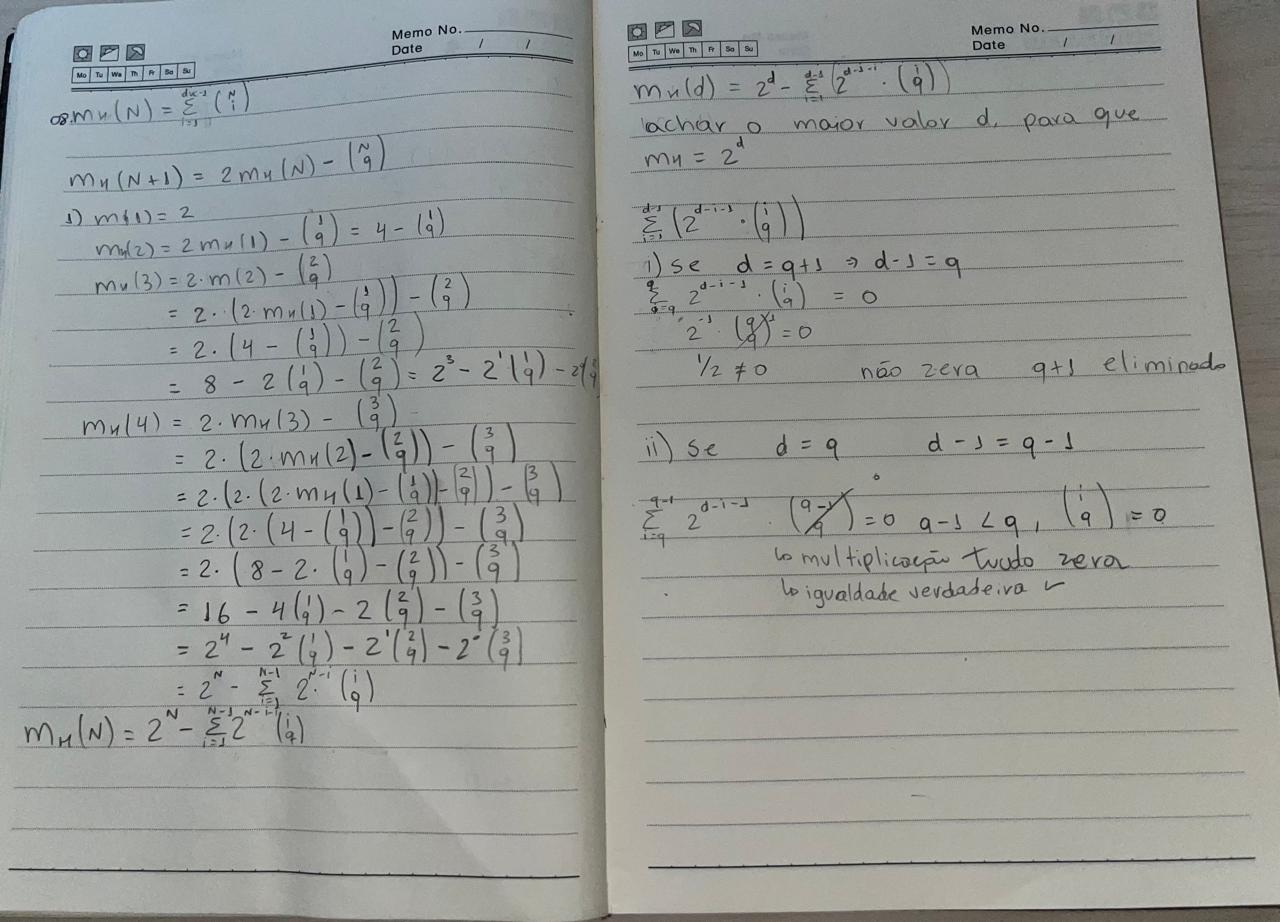 Memo No.
Date / /
Mo Tu We Th Fr Sa Su
08. mн(N) = Σ_{i=1}^{dvc-1} (N i)
mн(N+1) = 2mн(N) - (N q)
1) m(1) = 2
mн(2) = 2mн(1) - (1 q) = 4 - (1 q)
mн(3) = 2·m(2) - (2 q)
= 2·(2·mн(1) - (1 q)) - (2 q)
= 2·(4 - (1 q)) - (2 q)
= 8 - 2(1 q) - (2 q) = 2^3 - 2^1(1 q) - 2
mн(4) = 2·mн(3) - (3 q)
= 2·(2·mн(2) - (2 q)) - (3 q)
= 2·(2·(2·mн(1) - (1 q)) - (2 q)) - (3 q)
= 2·(2·(4 - (1 q)) - (2 q)) - (3 q)
= 2·(8 - 2·(1 q) - (2 q)) - (3 q)
= 16 - 4(1 q) - 2(2 q) - (3 q)
= 2^4 - 2^2(1 q) - 2^1(2 q) - 2^0(3 q)
= 2^N - Σ_{i=1}^{N-1} 2^{N-i}·(i q)
mн(N) = 2^N - Σ_{i=1}^{N-1} 2^{N-i-1}(i q)
Memo No.
Date / /
Mo Tu We Th Fr Sa Su
mн(d) = 2^d - Σ_{i=1}^{d-1} (2^{d-i-1}·(i q))
achar o maior valor d, para que
mн = 2^d
Σ_{i=1}^{d-1} (2^{d-i-1}·(i q))
i) se d = q+1 ⇒ d-1 = q
Σ_{q=q}^{q} 2^{d-i-1}·(i q) = 0
2^{-1}·(q q)^1 = 0
1/2 ≠ 0 não zera q+1 eliminado
ii) Se d = q d-1 = q-1
0
Σ_{i=q}^{q-1} 2^{d-i-1}·(q-1 q) = 0 q-1 < q, (i q) = 0
↳ multiplicação tudo zera
↳ igualdade verdadeira ✓